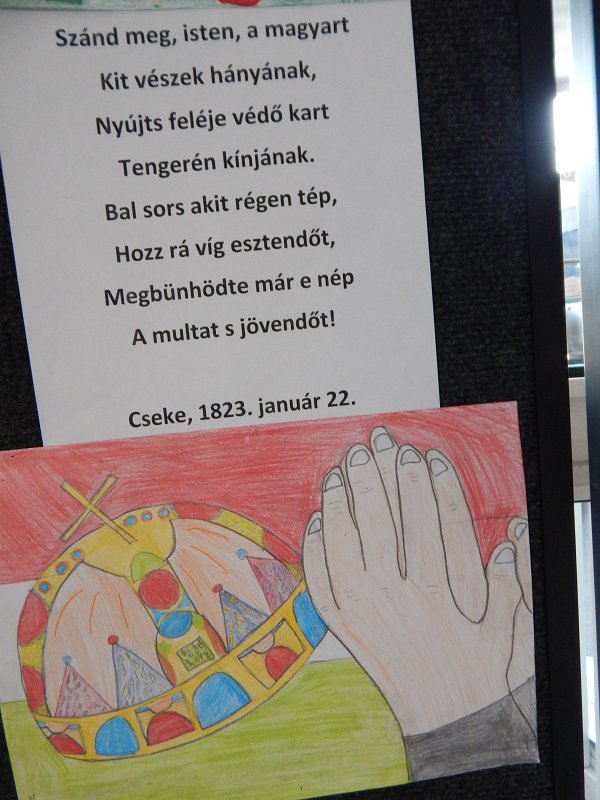 Szánd meg, isten, a magyart
Kit vészek hányának,
Nyújts feléje védő kart
Tengerén kínjának.
Bal sors akit régen tép,
Hozz rá víg esztendőt,
Megbünhödte már e nép
A multat s jövendőt!
Cseke, 1823. január 22.